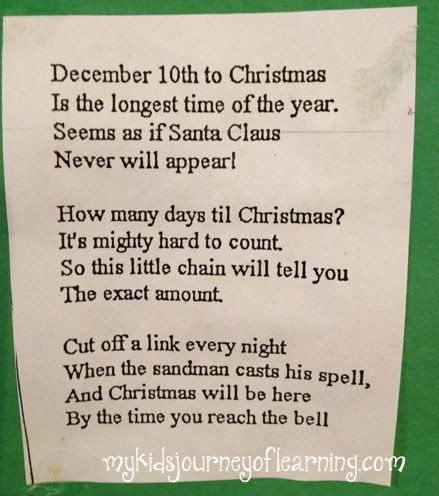 December 10th to Christmas
Is the longest time of the year.
Seems as if Santa Claus
Never will appear!
How many days til Christmas?
It's mighty hard to count.
So this little chain will tell you
The exact amount.
Cut off a link every night
When the sandman casts his spell,
And Christmas will be here
By the time you reach the bell
mykidsjourneyoflearning.com